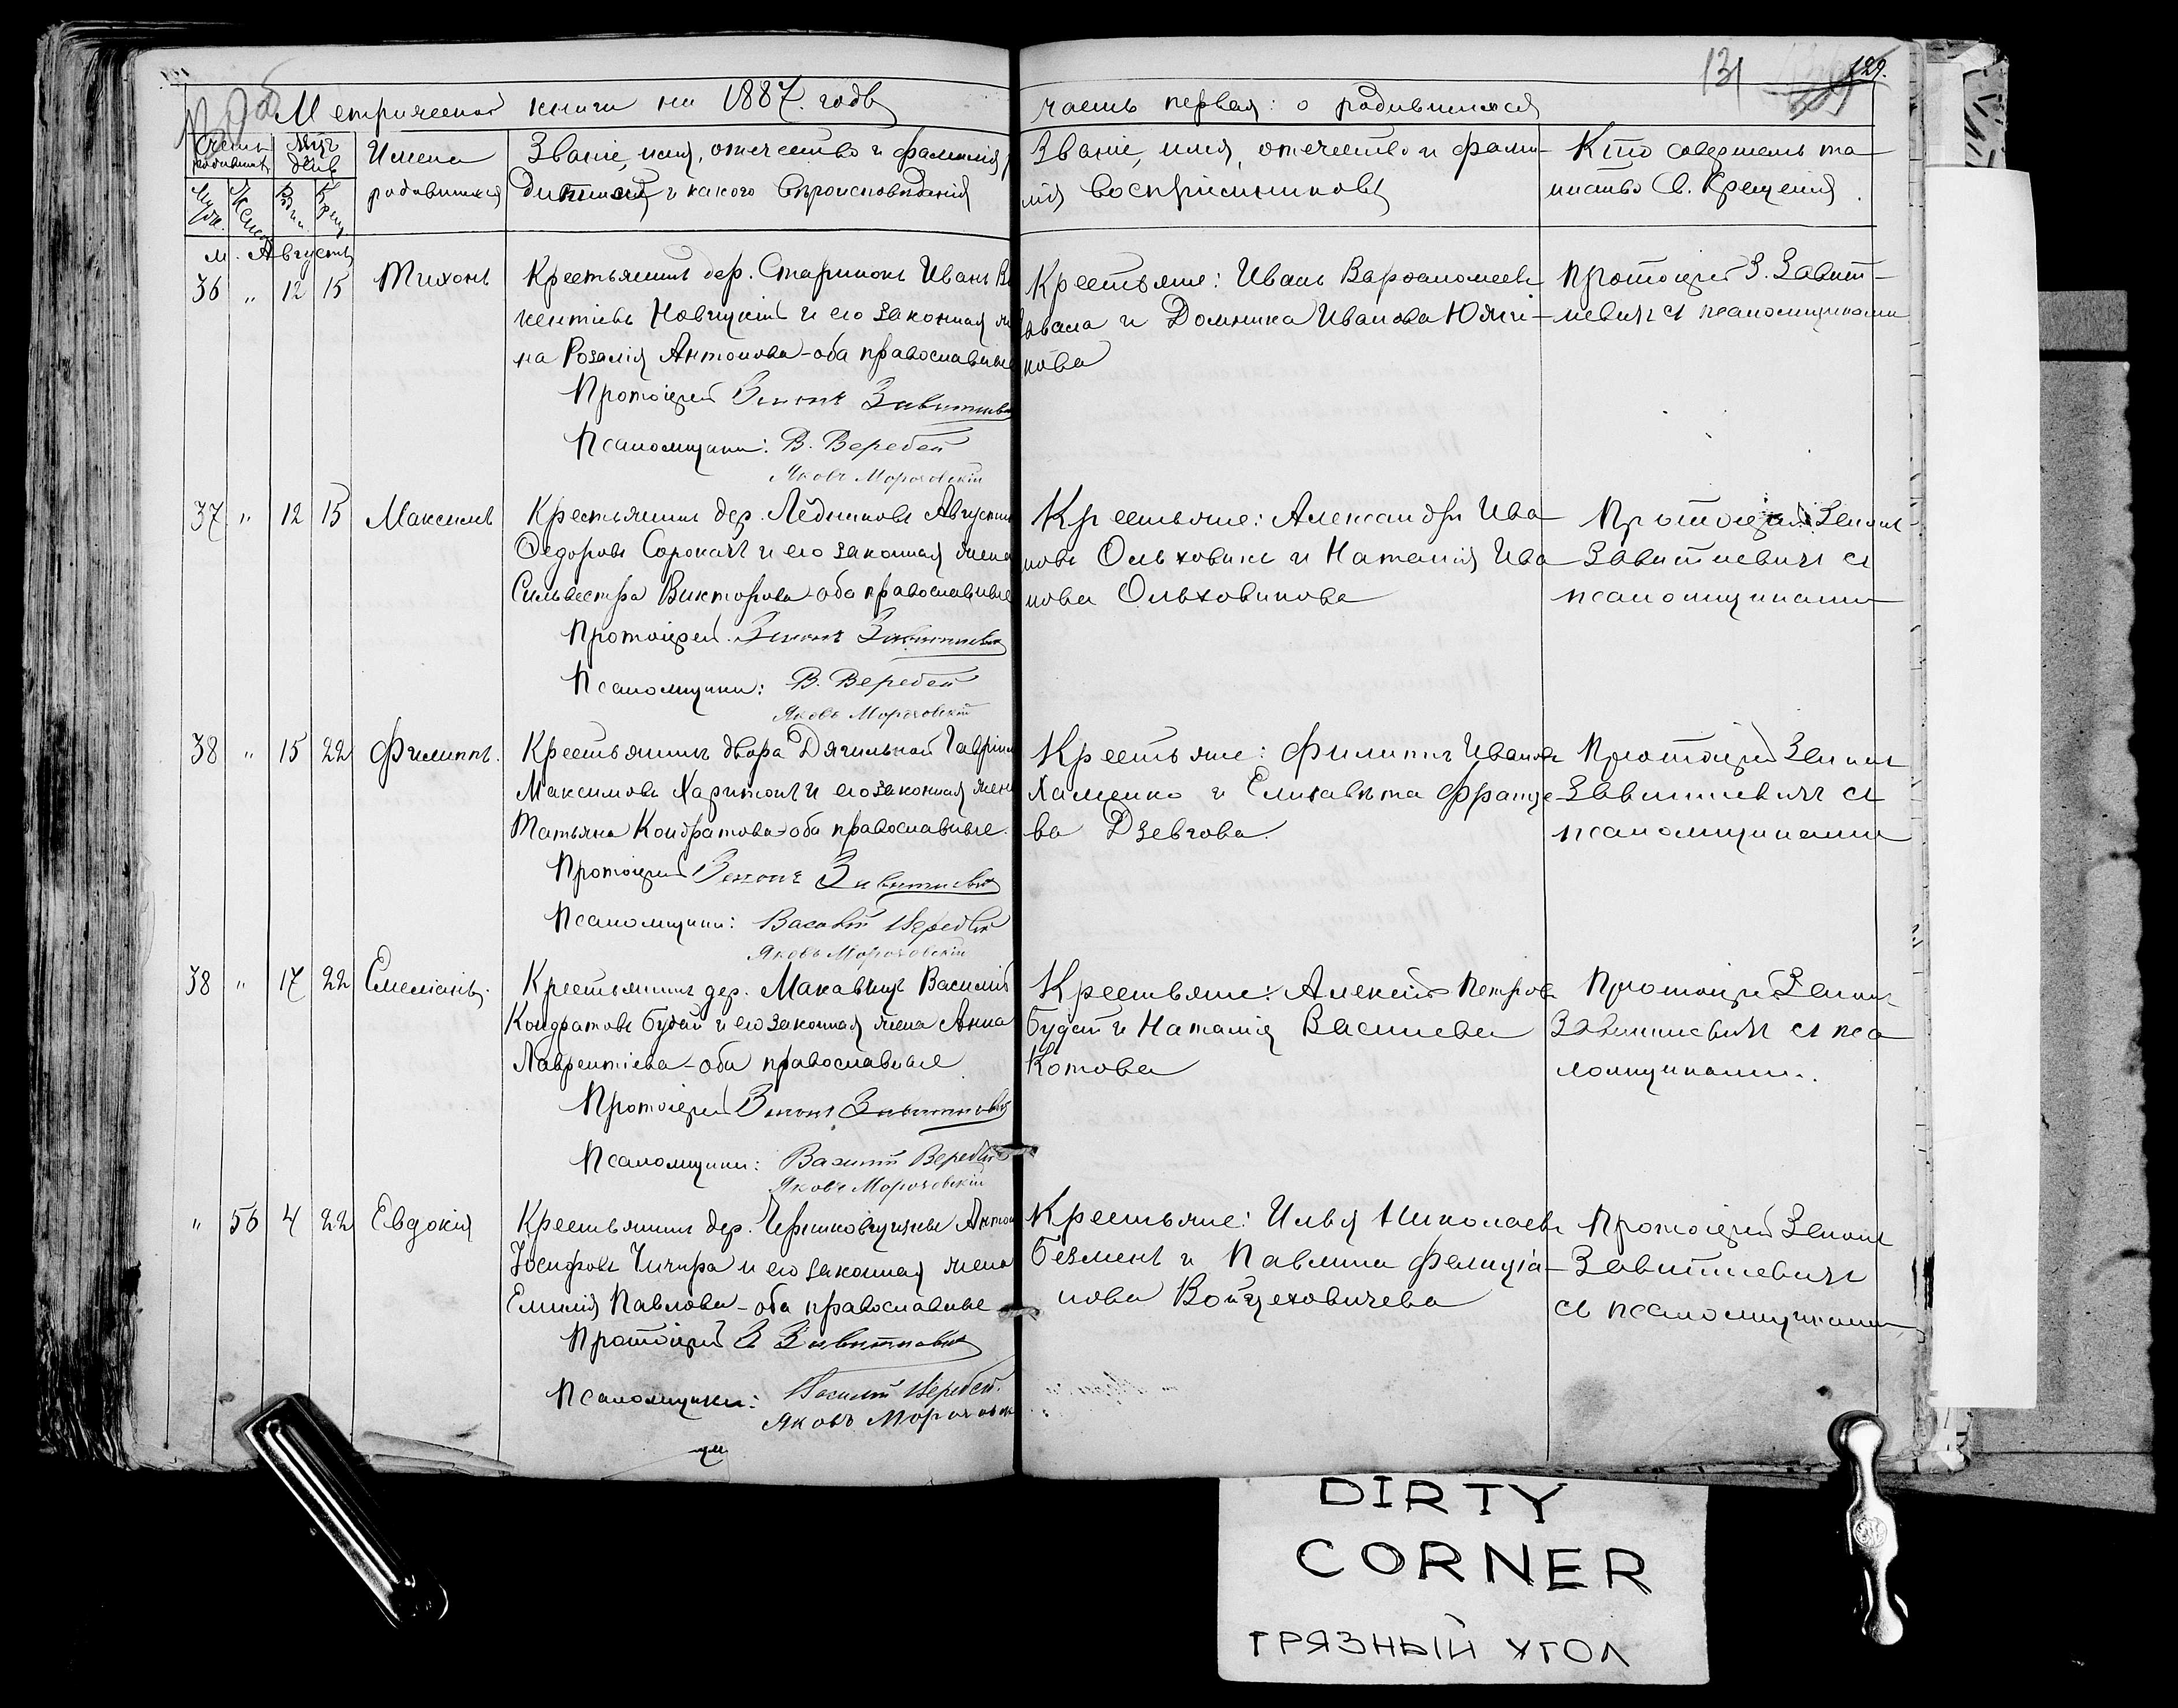 131
129.
Метрической книги на 1887. годъ
часть первая: о родившихся
Счетъ родившихся
Мѣсяцъ и день
Муж.
Женск.
Рожд.
Крещ.
Имена родившихся
Званіе, имя, отчество и фамилія ро
дителей и какого вѣроисповѣданія
Званіе, имя, отечество и фами-
лія воспріемниковъ
Кто совершалъ та
инство Св. Крещенія.
м. Августъ
36 " 12 15 Тихонъ
Крестьянинъ дер. Старинокъ Иванъ Ви
кентіевъ Новицкій и его законная же
на Розалія Антонова - оба православные
Протоіерей Зенонъ Завитневичъ
Псаломщики: В.Веребей
Яковъ Мороховскій
Крестьяне: Иванъ Варѳоломеевъ
и Домника Иванова
кова
Протоіерей З. Завит-
невичъ съ псаломщиками
37 " 12 15 Максимъ
Крестьянинъ дер. Ледниковъ Августинъ
Ѳедоровъ Сорокачъ и его законная жена
Сильвестра Викторова - оба православные
Протоіерей Зенонъ Завитневичъ
Псаломщики: В. Веребей
Яковъ Мороховскій
Крестьяне: Александръ Ива
новъ Ольховикъ и Наталія Ива
нова Ольховикова
Протоіерей Зенонъ
Завитневичъ съ
псаломщиками
38 " 15 22 Филиппъ.
Крестьянинъ двора Дягильной Гавріилъ
Максимовъ Харитонъ и его законная жена
Татьяна Кондратова - оба православные.
Протоіерей Зенонъ Завитневичъ
Псаломщики: Василій Веребей
Яковъ Мороховскій
Крестьяне: Филиппъ Ивановъ
Хаменко и Елизавета Францe
ва Дзевгова.
Протоіерей Зенонъ
Завитневичъ съ
псаломщиками
38 " 17 22 Емеліанъ.
Крестьянинъ дер. Макавчицъ Василій
Кондратовъ Будай и его законная жена Анна
Лаврентіева - оба православные
Протоіерей Зенонъ Завитневичъ
Псаломщики: Василій Веребей
Яковъ Мороховскій
Крестьяне: Алексѣй Петровъ
Будай и Наталія Васильева
Котова
Протоіерей Зенонъ
Завитневичъ съ пса
ломщиками.
" 56 4 22 Евдокія
Крестьянинъ дер. Антонъ
Іосифовъ Чичира и его законная жена
Емилія Павлова - оба православные
Протоіерей З Завитневичъ
Псаломщики: Василій Веребей.
Яковъ Мороховск
Крестьяне: Илья Николаевъ
Безменъ и Павлина Фелиціа-
нова Войцеховичева
Протоіерей Зенонъ
Завитневичъ
съ псаломщиками
DIRTY
CORNER
ГРЯЗНЫЙ УГОЛ